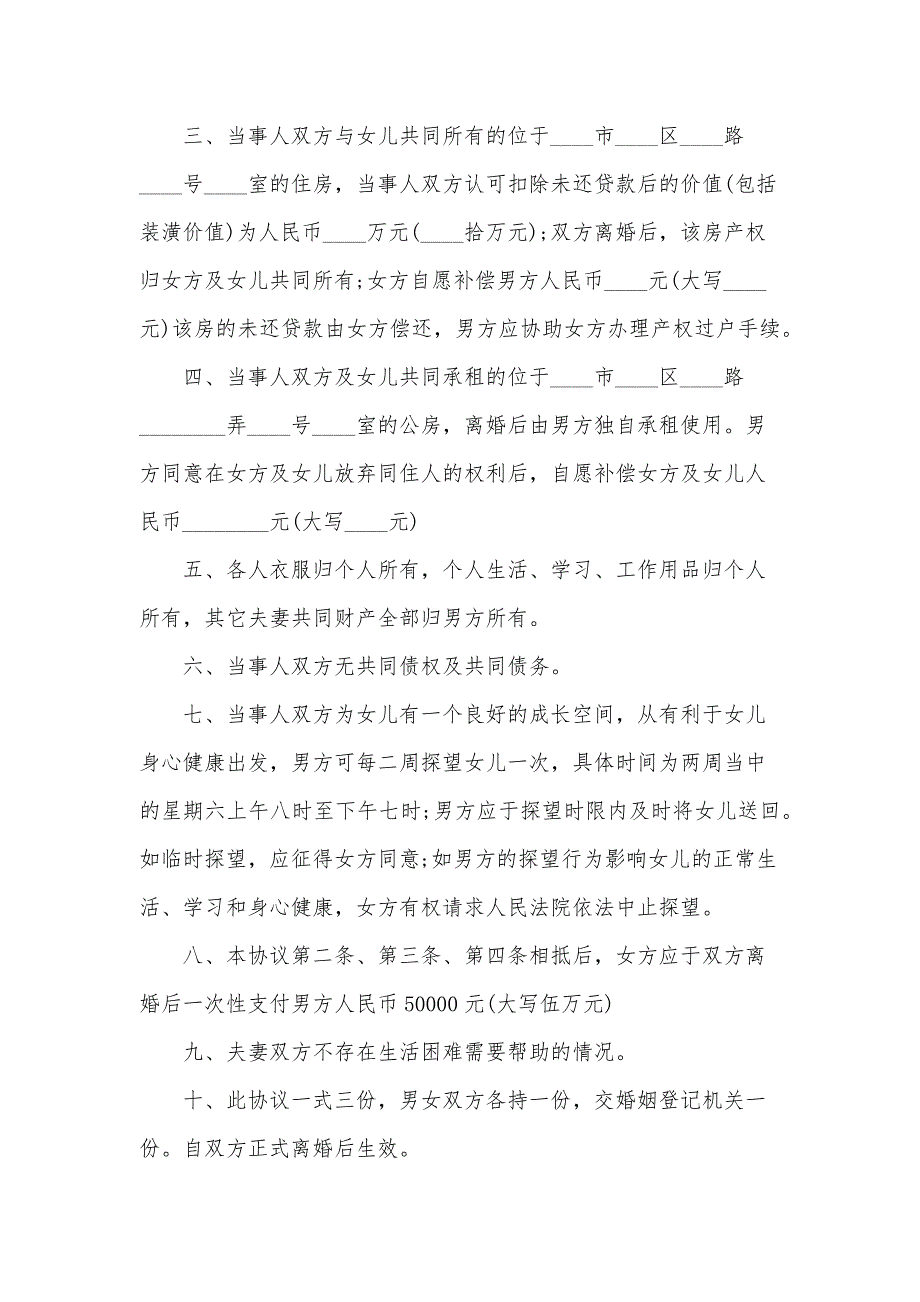 三、当事人双方与女儿共同所有的位于____市____区____路
____号____室的住房，当事人双方认可扣除未还贷款后的价值(包括
装潢价值)为人民币____万元(____拾万元);双方离婚后，该房产权
归女方及女儿共同所有;女方自愿补偿男方人民币____元(大写____
元)该房的未还贷款由女方偿还，男方应协助女方办理产权过户手续。
四、当事人双方及女儿共同承租的位于____市____区____路
________弄____号____室的公房，离婚后由男方独自承租使用。男
方同意在女方及女儿放弃同住人的权利后，自愿补偿女方及女儿人
民币________元(大写____元)
五、各人衣服归个人所有，个人生活、学习、工作用品归个人
所有，其它夫妻共同财产全部归男方所有。
六、当事人双方无共同债权及共同债务。
七、当事人双方为女儿有一个良好的成长空间，从有利于女儿
身心健康出发，男方可每二周探望女儿一次，具体时间为两周当中
的星期六上午八时至下午七时;男方应于探望时限内及时将女儿送回。
如临时探望，应征得女方同意;如男方的探望行为影响女儿的正常生
活、学习和身心健康，女方有权请求人民法院依法中止探望。
八、本协议第二条、第三条、第四条相抵后，女方应于双方离
婚后一次性支付男方人民币 50000 元(大写伍万元)
九、夫妻双方不存在生活困难需要帮助的情况。
十、此协议一式三份，男女双方各持一份，交婚姻登记机关一
份。自双方正式离婚后生效。